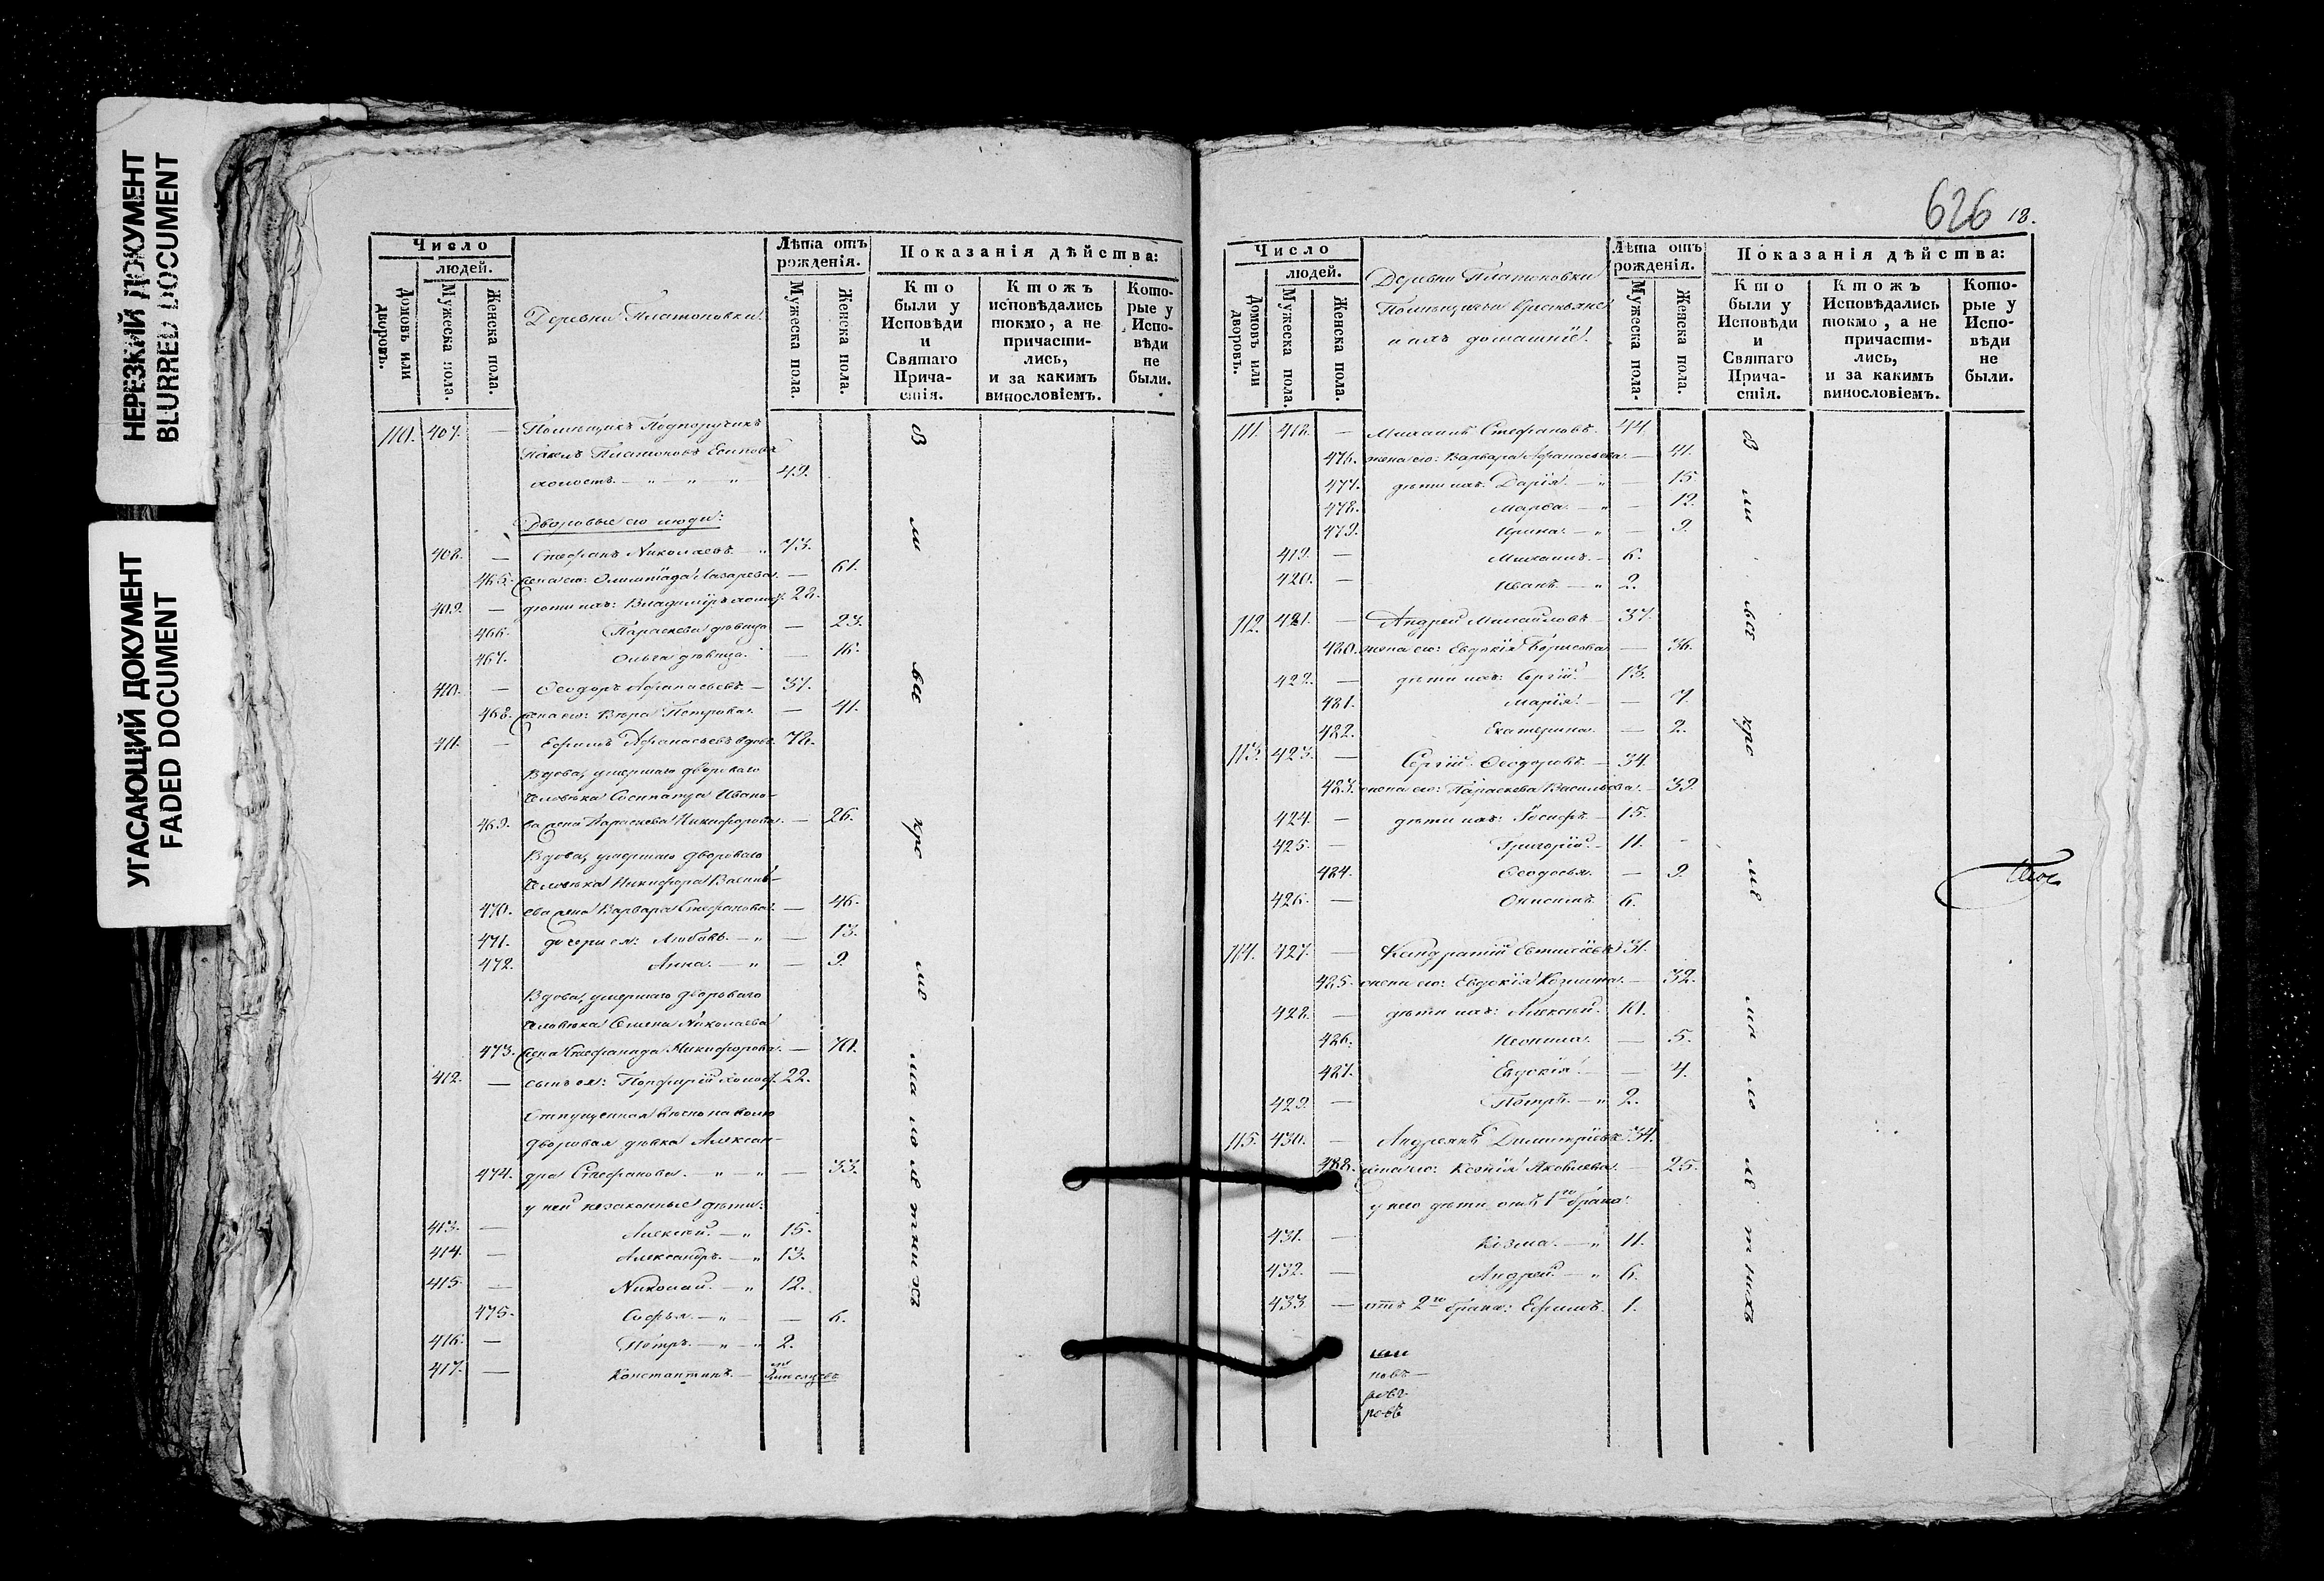 НЕРЕЗКИЙ ДОКУМЕНТ
BLURRED DOCUMENT
УГАСАЮЩИЙ ДОКУМЕНТ
FADED DOCUMENT
Число
людей.
Домовъ или дворовъ.
Мужеска пола.
Женска пола.
Деревни Платоновки.
Лѣта отъ рожденія.
Мужеска пола.
Женска пола.
Показанія дѣйства:
Кто были у Исповѣди и Святаго Прича-стія.
Ктожъ исповѣдались токмо, а не причасти-лись, и за какимъ винословіемъ.
Кото-рые у Испо-вѣди не были.
110. 407. — Помѣщикъ Подпоручикъ
Павелъ Платоновъ Есиповъ
холостъ. — " — " — " 49.
Дворовые его люди:
408. — Стефанъ Николаевъ. — " 73.
465. жена его: Олимпіада Лазарева. — 61.
409. — дѣти ихъ: Владиміръ холост. 28.
466. Параскева дѣвица — 23.
467. Ольга дѣвица. — 16.
410. — Ѳеодоръ Афанасьевъ. — 37.
468. жена его: Вѣра Петрова. — 41.
411. — Ефимъ Афанасьевъ вдовъ. 72.
Вдова, умершаго двороваго
человѣка Сосипатра Ивано-
469. ва жена Параскева Никифорова. — 26.
Вдова, умершаго двороваго
человѣка Никифора Василь-
470. ева жена Варвара Стефанова. — 46.
471. дочери ея: Любовь. — " — 13.
472. Анна. — " — 9.
Вдова, умершаго двороваго
человѣка Семена Николаева
473. жена Стефанида Никифорова. — 70.
412. — сынъ ея: Порфирій холост. 22.
Отпущенная вѣчно на волю
дворовая дѣвка Алексан-
474. дра Стефанова. — " — " — 33.
у ней незаконные дѣти:
413. — Алексѣй. — " 15.
414. — Александръ. — " 13.
415. — Николай. — " 12.
475. Софья. — " — 6.
416. — Петръ. — " — " 2.
417. — Константинъ. —
В ли вы кре ме на ло ле тнихъ
626 18.
Число
людей.
Домовъ или дворовъ.
Мужеска пола.
Женска пола.
Деревни Платоновки
Помѣщичьи Крестьяне
и ихъ домашніе.
Лѣта отъ рожденія.
Мужеска пола.
Женска пола.
Показанія дѣйства:
Кто были у Исповѣди и Святаго Прича-стія.
Ктожъ Исповѣдались токмо, а не причасти-лись, и за какимъ винословіемъ.
Кото-рые у Испо-вѣди не были.
111. 418. — Михаилъ Стефановъ. 44.
476. жена его: Варвара Афанасьева. — 41.
477. дѣти ихъ: Дарія. — " — 15.
478. Марѳа. — " — 12.
479. Ирина. — " — 9.
419. — Михаилъ. — 6.
420. — Иванъ. — " 2.
112. 421. — Андрей Михайловъ — 37.
480. жена его: Евдокія Борисова. — 36.
422. — дѣти ихъ: Сергій. — 13.
481. Марія. — — 7.
482. Екатерина. — 2.
113. 423. — Сергій Ѳеодоровъ. — 34.
483. жена его: Параскева Васильева. — 39.
424. — дѣти ихъ: Іосифъ. — 15.
425. — Григорій. — 11.
484. Ѳеодосья. — 9.
426. — Онисимъ. 6.
114. 427. — Кондратій Евтихіевъ 31.
485. жена его: Евдокія Козмина. — 32.
428. — дѣти ихъ: Алексѣй. 10.
486. Неонила. — 5.
487. Евдокія. — 4.
429. — Петръ. — " 2.
115. 430. — Андреянъ Димитріевъ 34.
488. жена его: Ксенія Яковлева. — 25.
у него дѣти отъ 1го брака:
431. — Козма. — " 11.
432. — Андрей. — " 6.
433 — отъ 2го брака: Ефимъ. 1.
новъ
ровъ
В ли вы кре ме на ло ле тнихъ